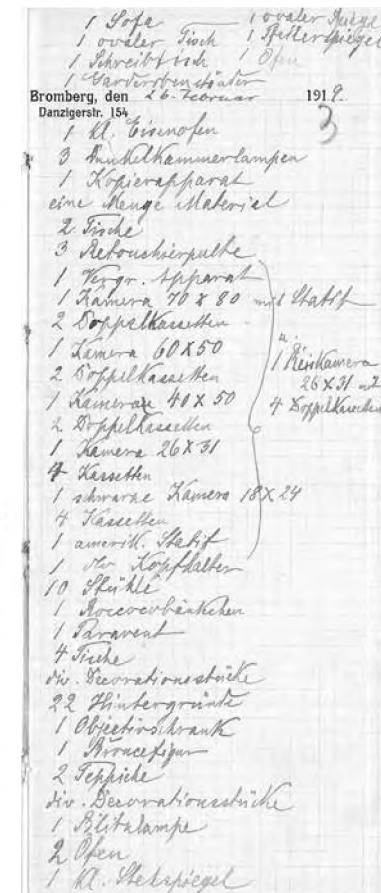 1 Sofa
1 ovaler Tisch
1 Schreibtisch
1 Garderobenständer
1 ovaler
1 Pfeilerspiegel
1 Ofen
Bromberg, den 26. Februar 1919.
Danzigerstr. 154
3
1 Kl. Eisenofen
3 Dunkelkammerlampen
1 Kopierapparat
eine Menge Material
2 Tische
3 Retouchierpulte
1 Vergr. Apparat
1 Kamera 70 x 80 mit Statif
2 Doppelkassetten
1 Kamera 60 x 50
2 Doppelkassetten
1 Kamera 40 x 50
2 Doppelkassetten
1 Kamera 26 x 31
4 Kassetten
1 schwarze Kamera 18 x 24
4 Kassetten
1 amerik. Statif
1 Kopfhalter
u.
1 Reiskamera
26 x 31 mit
4 Doppelkassetten
10 Stühle
1 Roccocobänkchen
1 Paravent
4 Tische
div. Decorationsstücke
22 Hintergründe
1 Objectivschrank
1 Broncefigur
2 Teppiche
div. Decorationsstücke
1 Blitzlampe
2 Öfen
1 Kl. Stehspiegel